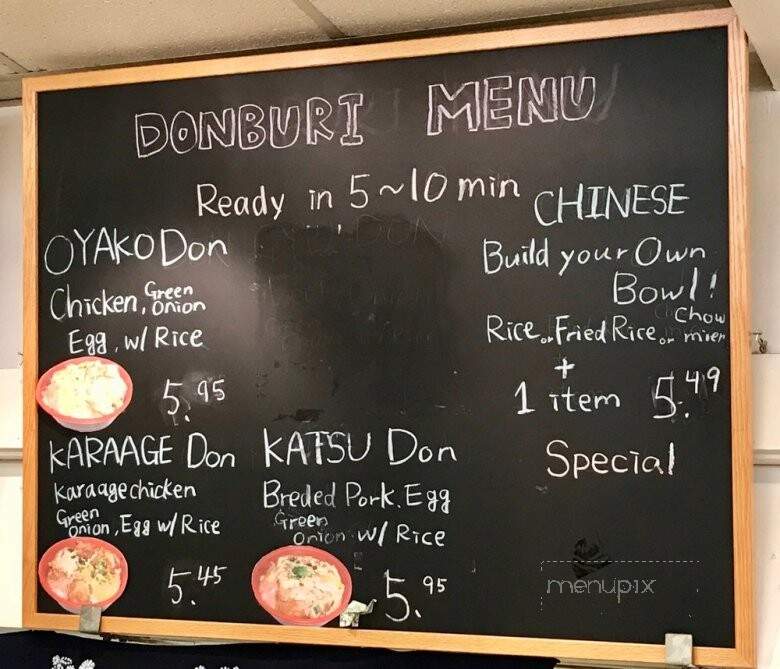 DONBURI MENU
Ready in 5~10 min
OYAKO Don
Chicken, Green Onion
Egg, w/ Rice
5.95
KARAAGE Don
Karaage chicken
Green Onion, Egg w/ Rice
5.45
KATSU Don
Breded Pork. Egg
Green Onion w/ Rice
5.95
CHINESE
Build your Own
Bowl!
Rice or Fried Rice or Chow mien
+
1 item 5.49
Special
menupix